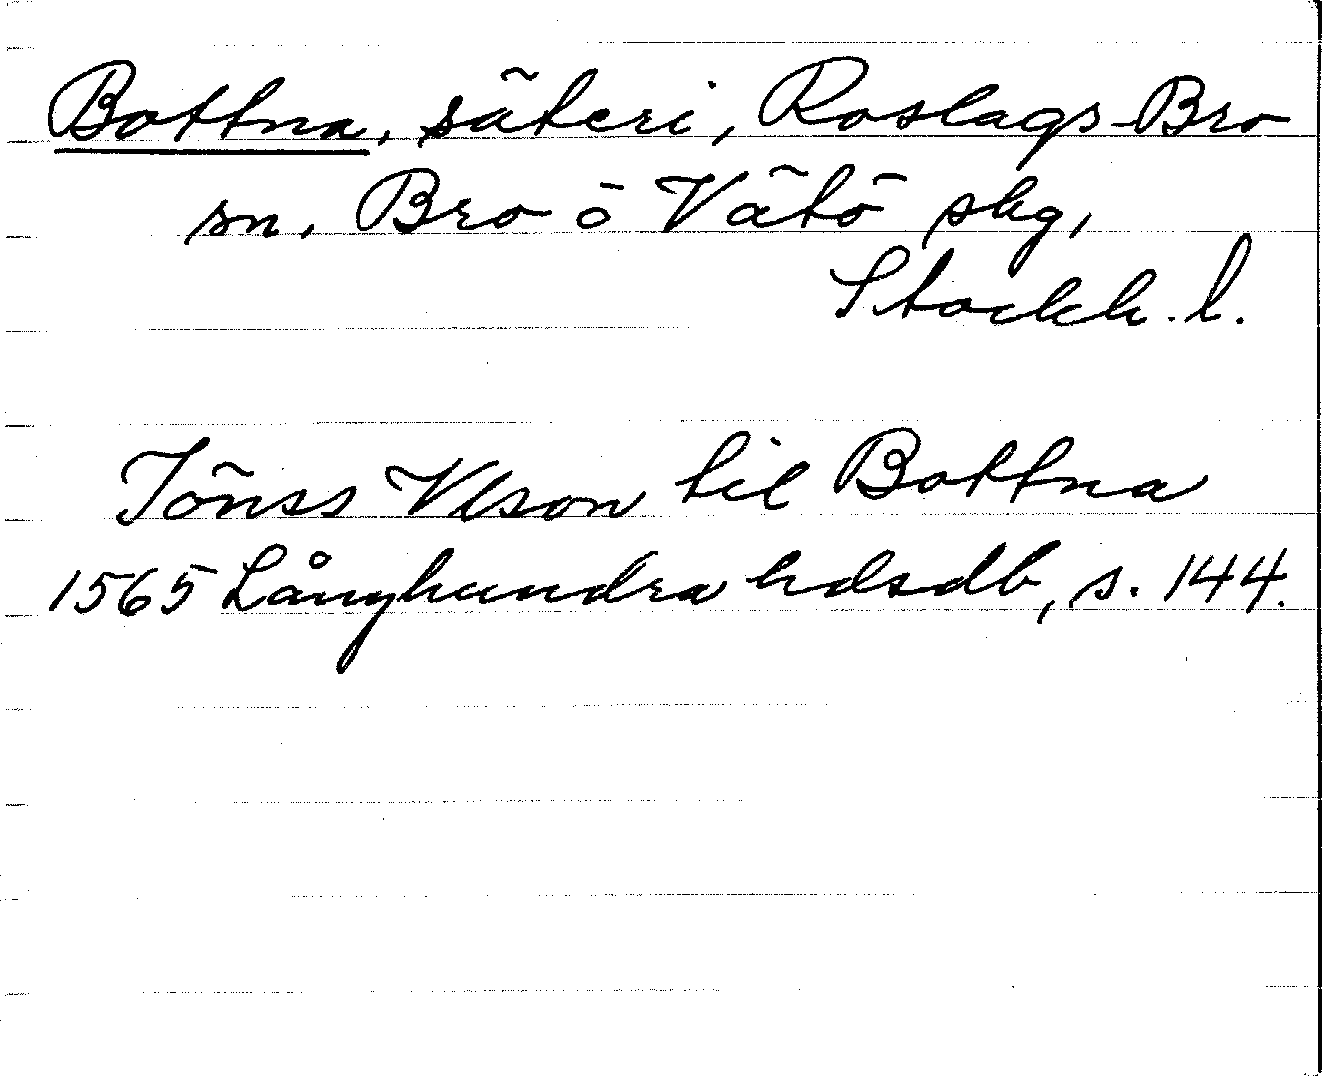 Bottna, säteri, Roslags-Bro
sn, Bro o Vätö skg,
Stockh. l.
Jönss Vlson til Bottna
1565 Långhundra hdsdb, s. 144.